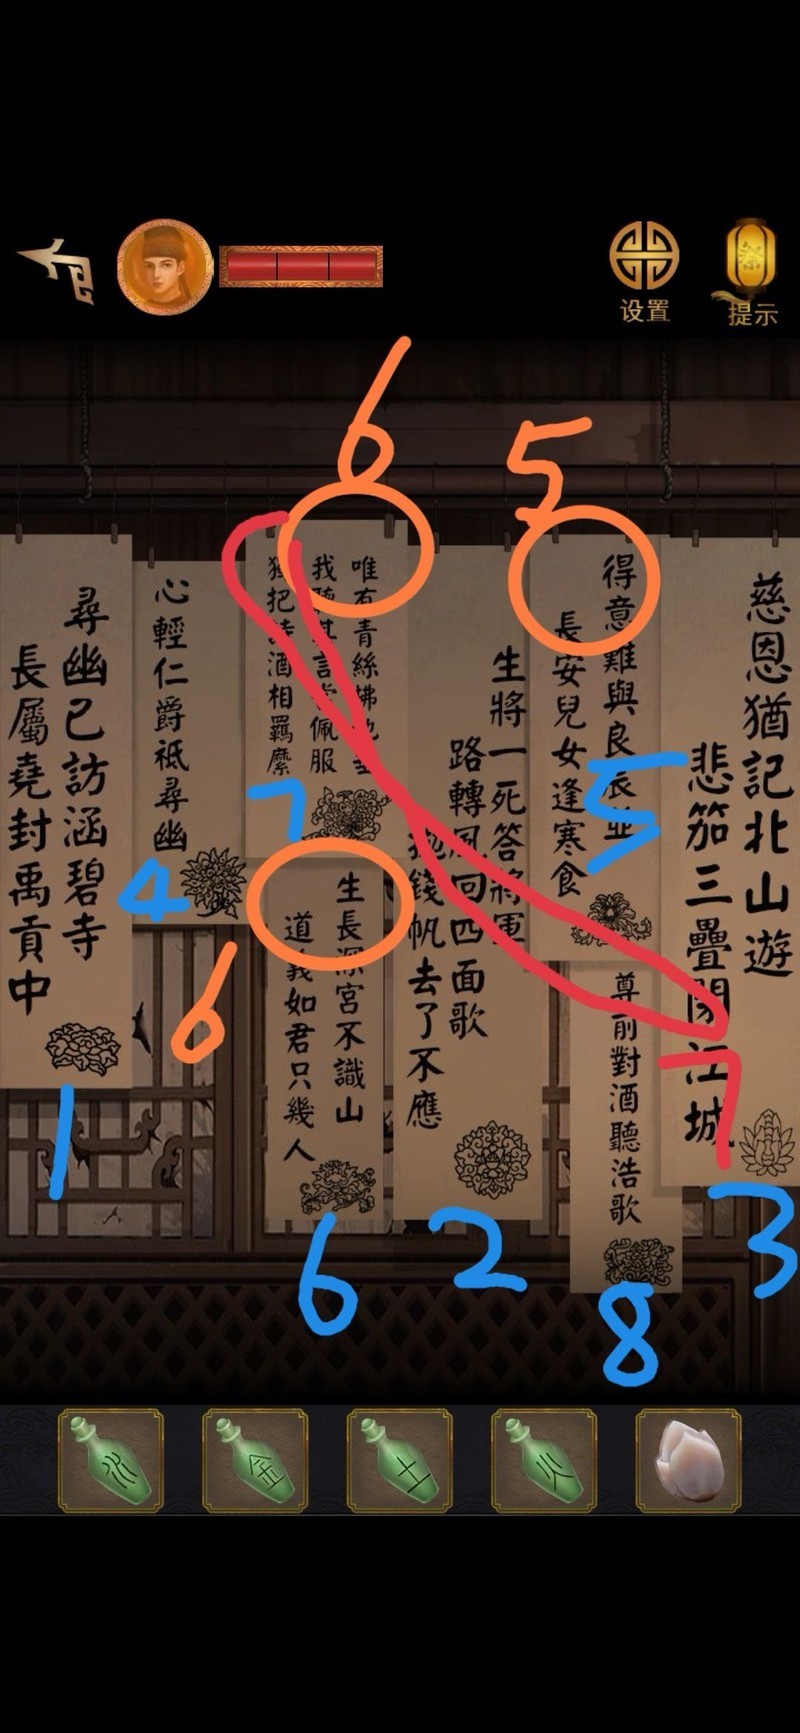 设置
提示
6
5
慈恩猶記北山遊
悲笳三疊江城
得意難與良辰並
長安兒女逢寒食
尊前對酒聽浩歌
生將一死答將軍
路轉風回四面歌
錢帆去了不應
唯有青絲拂地垂
我聽其言佩服
獨把詩酒相羈縻
生長深宮不識山
道義如君只幾人
心輕仁爵祗尋幽
尋幽已訪涵碧寺
長屬堯封禹貢中
5
7
4
6
7
1
3
6
2
8
水
金
土
火